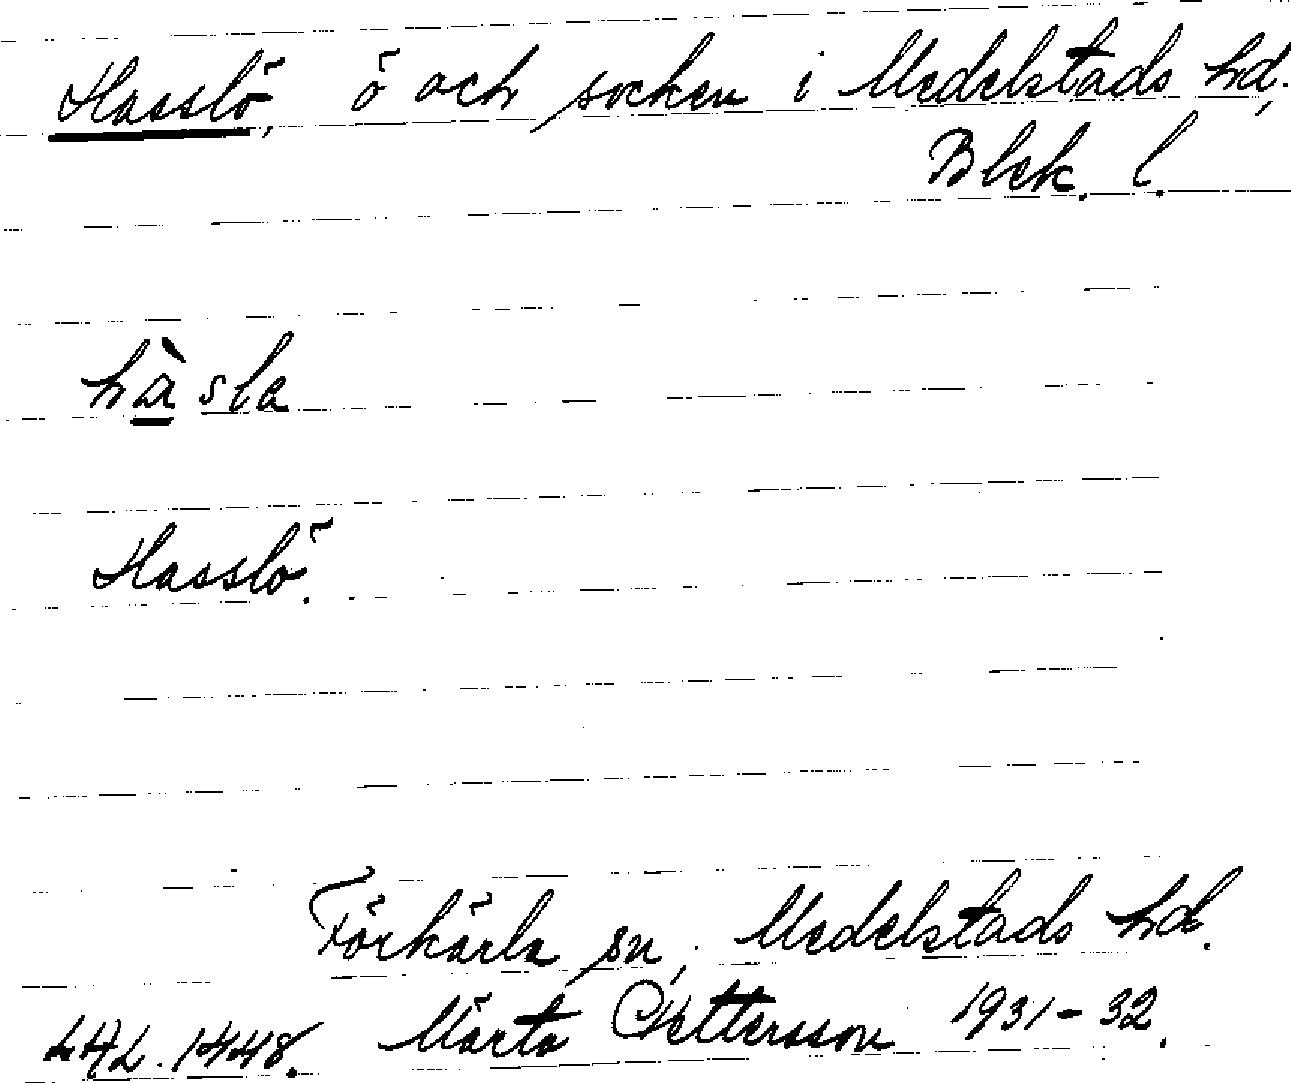 Hasslö, ö och socken i Medelstads hd.,
Blek. l.
hàsla
Hasslö.
Förkärla sn, Medelstads hd.
LAL. 1448. Märta Pettersson 1931-32.